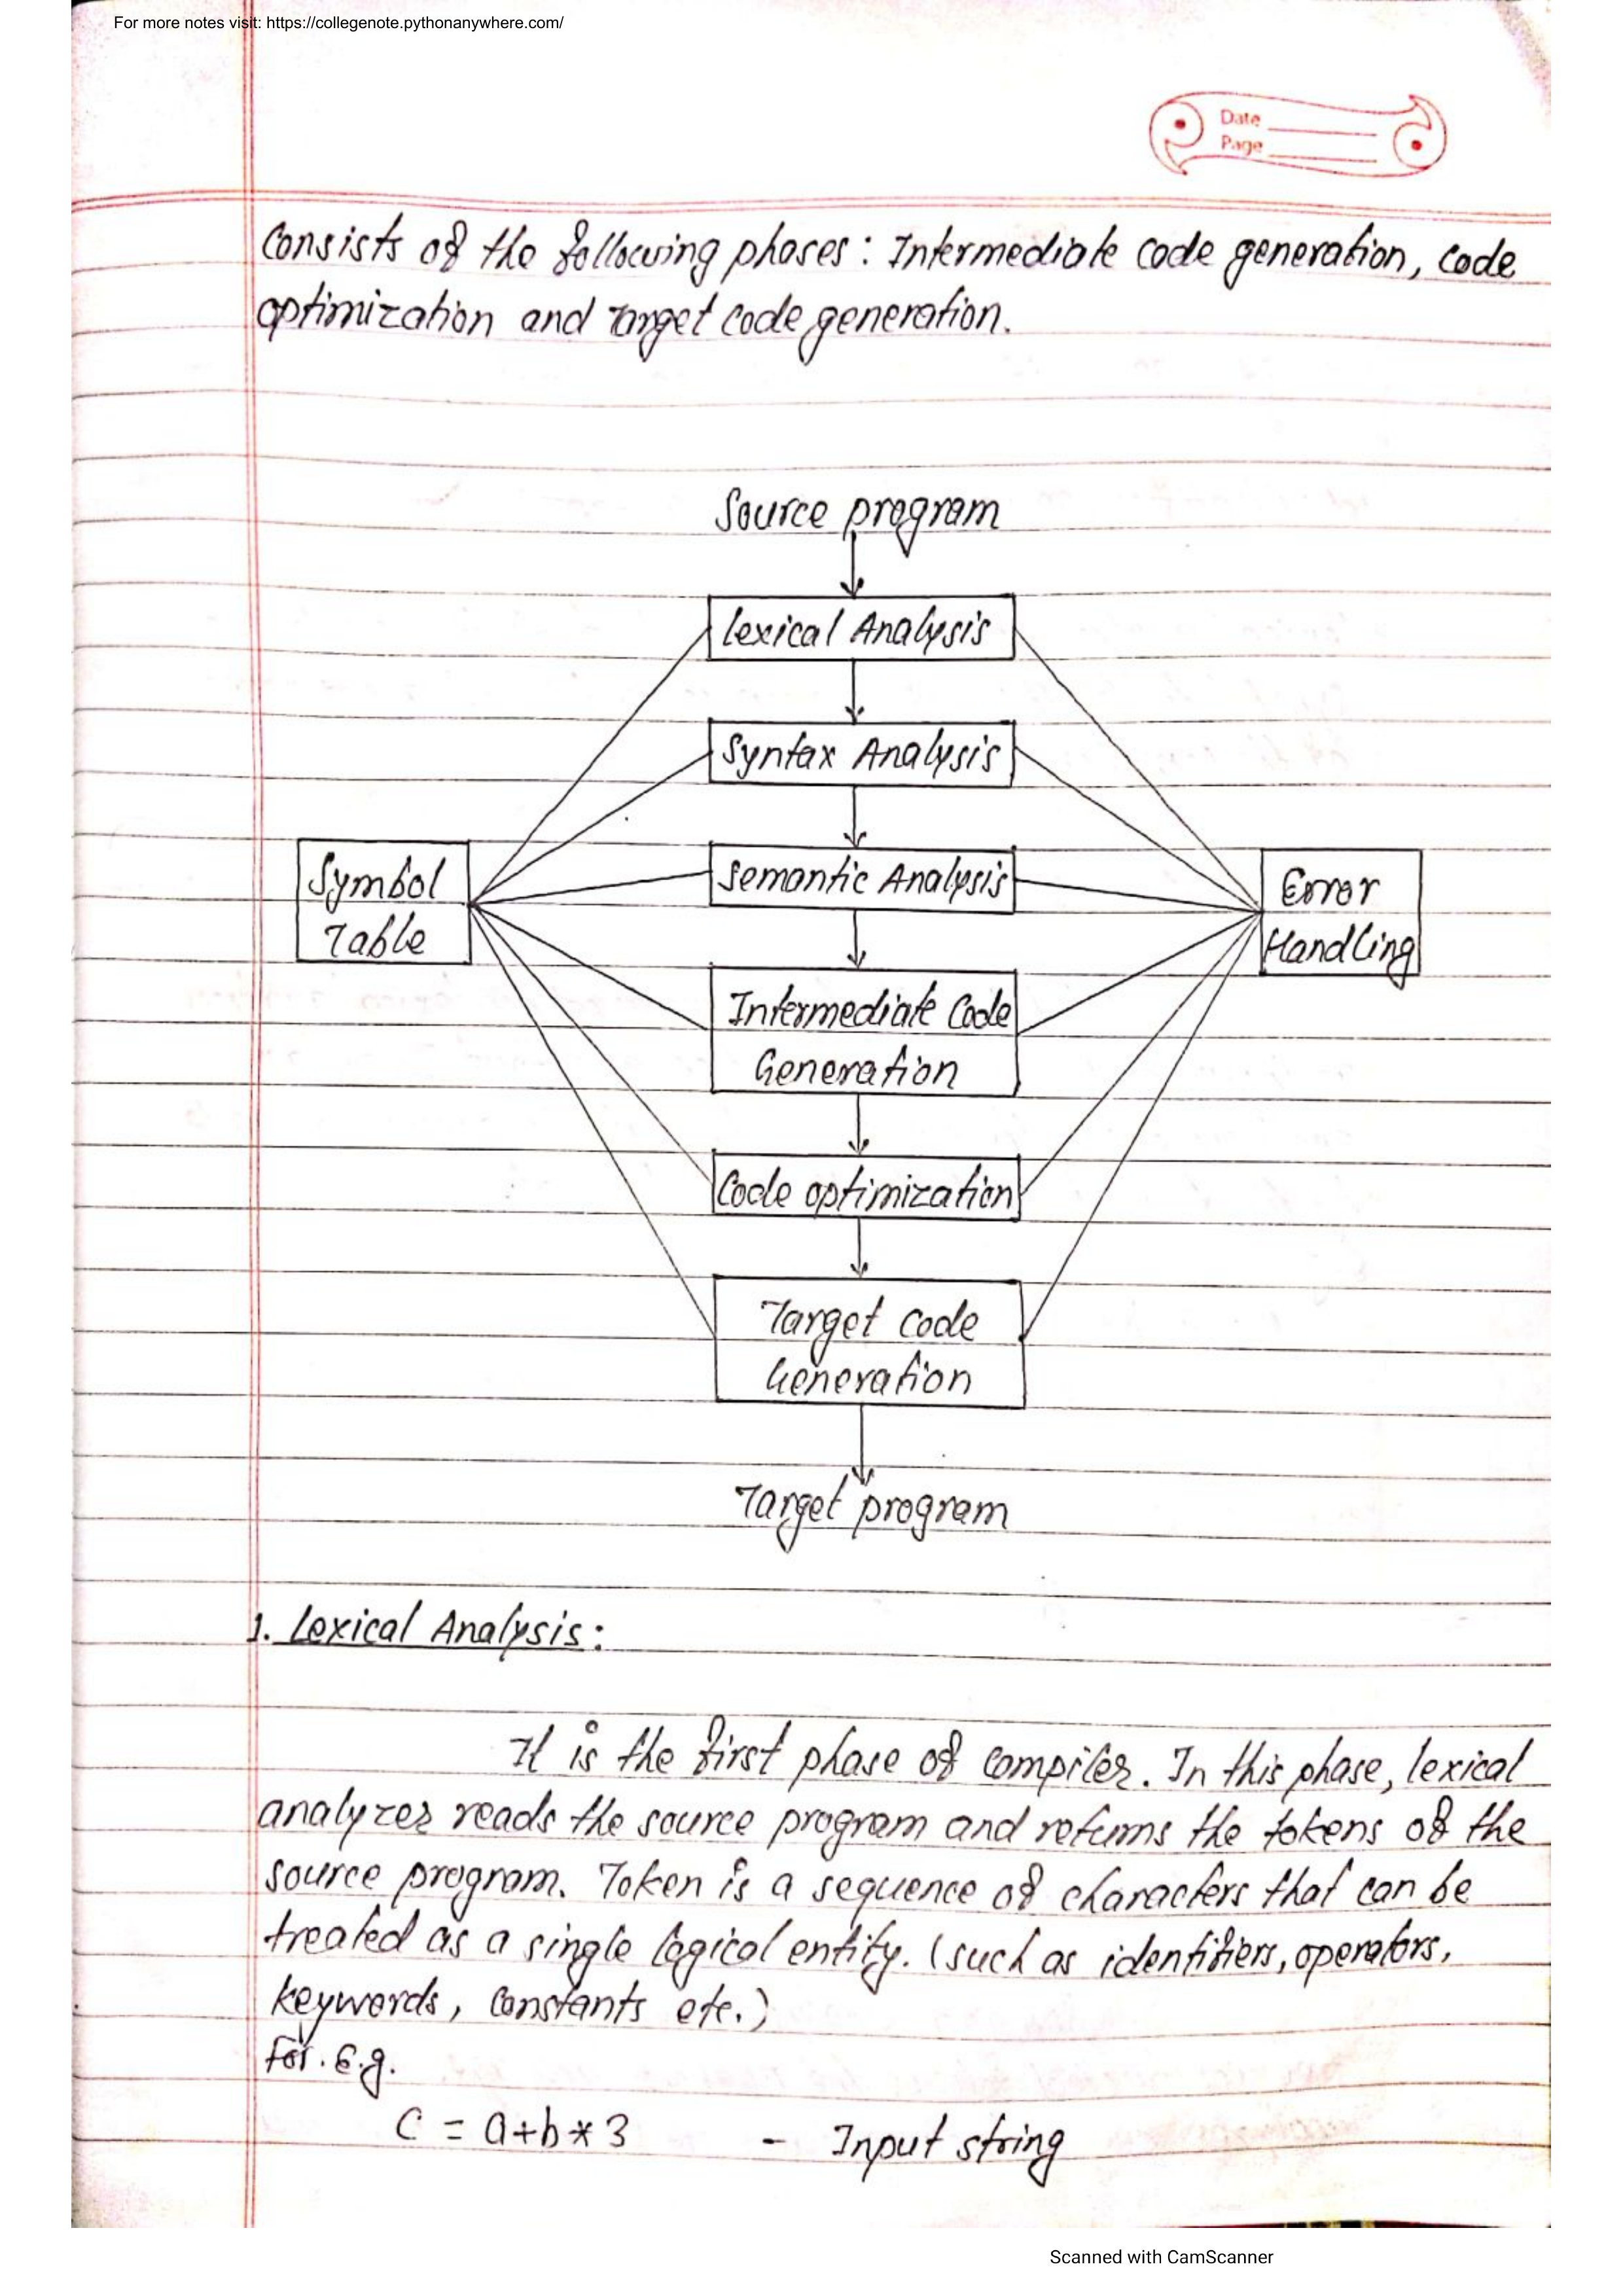 For more notes visit: https://collegenote.pythonanywhere.com/
Date
Page
Consists of the following phases: Intermediate code generation, code
optimization and Target code generation.
Source program
Lexical Analysis
Syntax Analysis
Symbol
Table
Semantic Analysis
Error
Handling
Intermediate Code
Generation
Code optimization
Target code
Generation
Target program
1. Lexical Analysis:
It is the first phase of compiler. In this phase, lexical
analyzer reads the source program and returns the tokens of the
source program. Token is a sequence of characters that can be
treated as a single logical entity. (such as identifiers, operators,
keywords, constants etc.)
For. E.g.
C = a+b*3 - Input string
Scanned with CamScanner